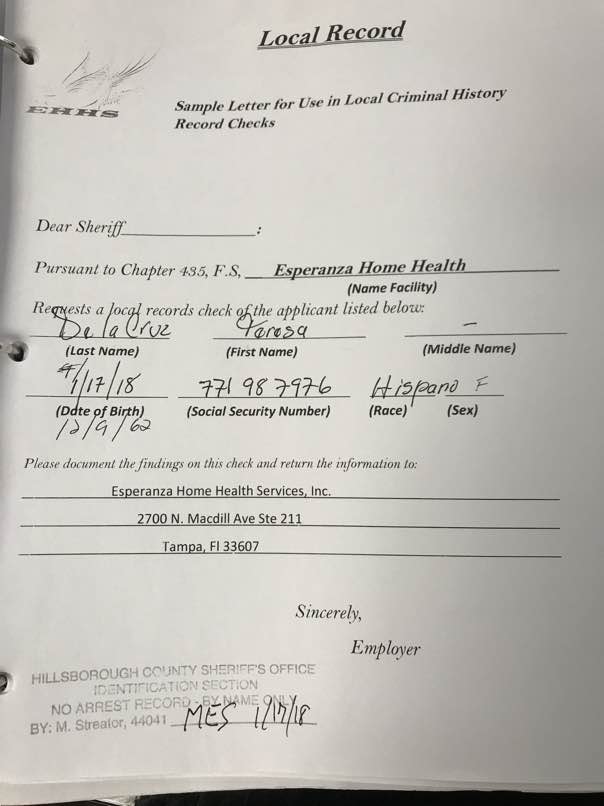 Local Record
EHHS
Sample Letter for Use in Local Criminal History
Record Checks
Dear Sheriff_______________:
Pursuant to Chapter 435, F.S, Esperanza Home Health
(Name Facility)
Requests a local records check of the applicant listed below:
De la Cruz Teresa -
(Last Name) (First Name) (Middle Name)
1/17/18 771 98 7976 Hispano F
(Date of Birth) (Social Security Number) (Race) (Sex)
12/9/62
Please document the findings on this check and return the information to:
Esperanza Home Health Services, Inc.
2700 N. Macdill Ave Ste 211
Tampa, Fl 33607
Sincerely,
Employer
HILLSBOROUGH COUNTY SHERIFF'S OFFICE
IDENTIFICATION SECTION
NO ARREST RECORD - BY NAME ONLY
BY: M. Streator, 44041 MES 1/17/18